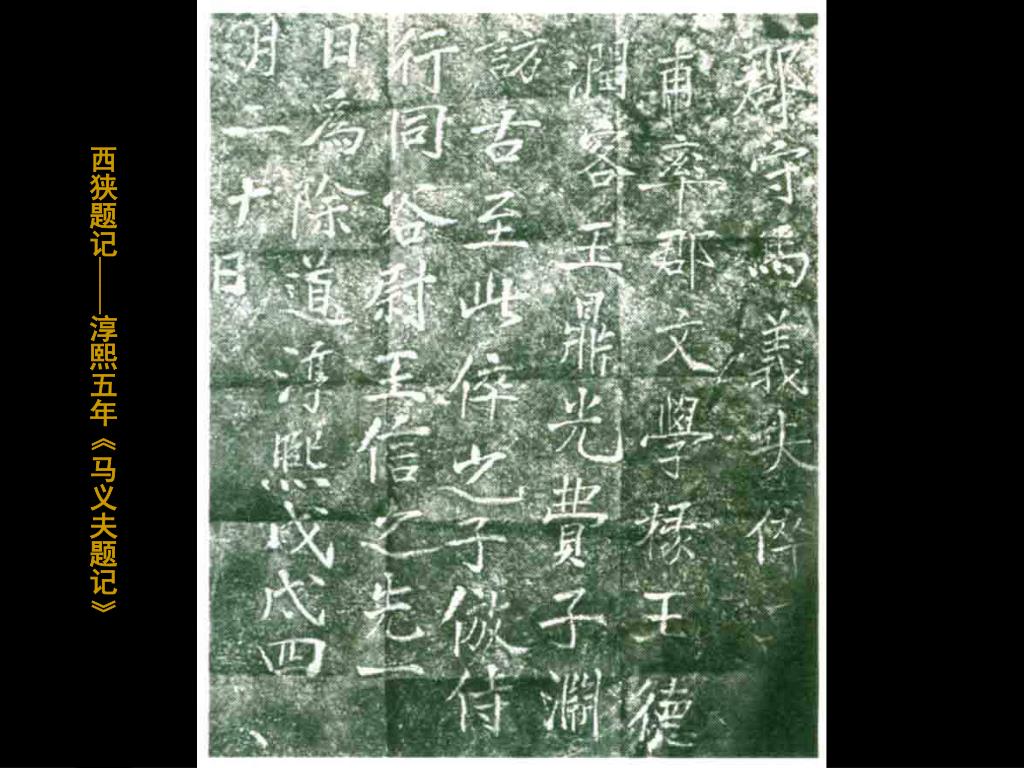 郡守馬義夫倅
甫率郡文學掾王德
潤客王鼎光費子淵
訪古至此倅之子侍
行同谷尉王信之先一
日爲除道淳熙戊戌四
月二十日
西狭题记——淳熙五年《马义夫题记》